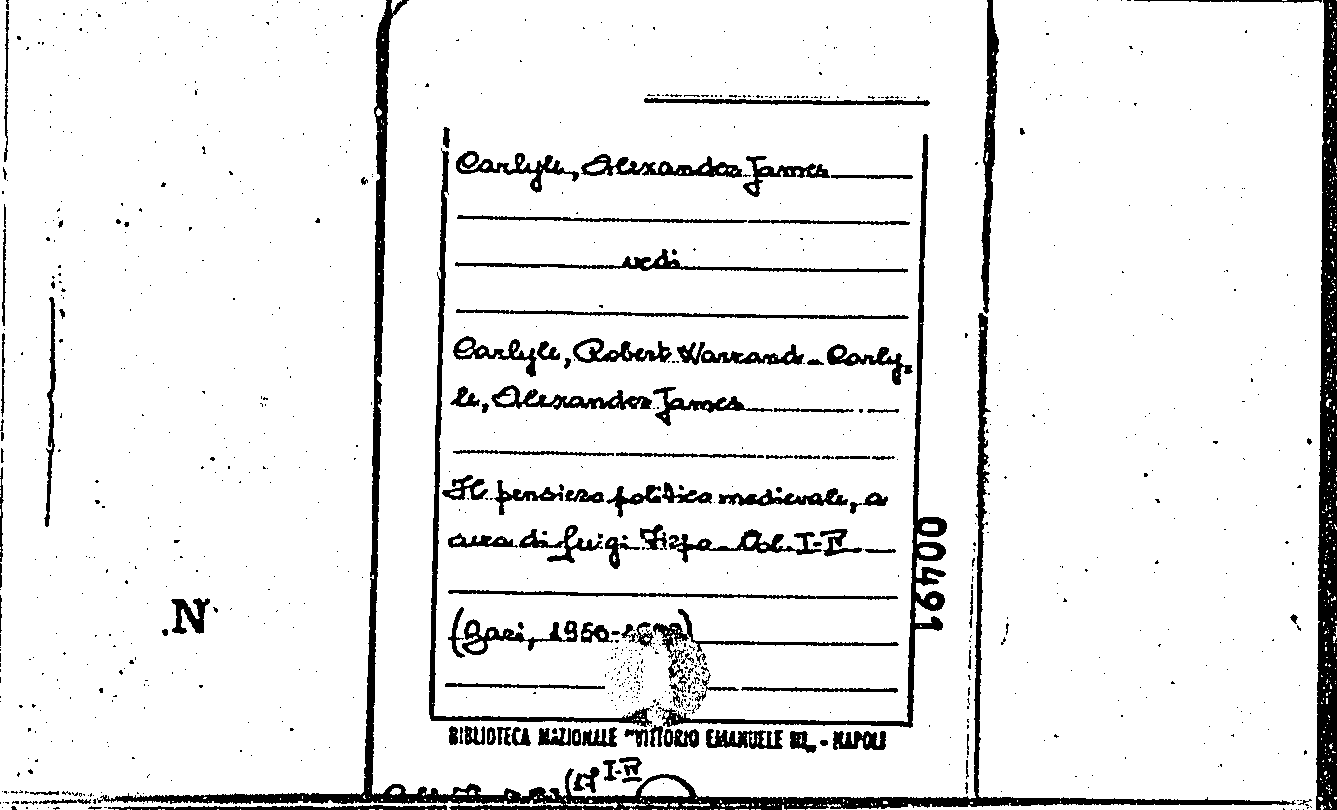 Carlyle, Alexander James
vedi
Carlyle, Robert Warrand - Carly-
le, Alexander James
Il pensiero politico medievale, a
cura di Luigi Firpo - Vol. I-IV
(Bari, 1956-
00491
N
BIBLIOTECA NAZIONALE "VITTORIO EMANUELE III„ - NAPOLI
(17 I-IV